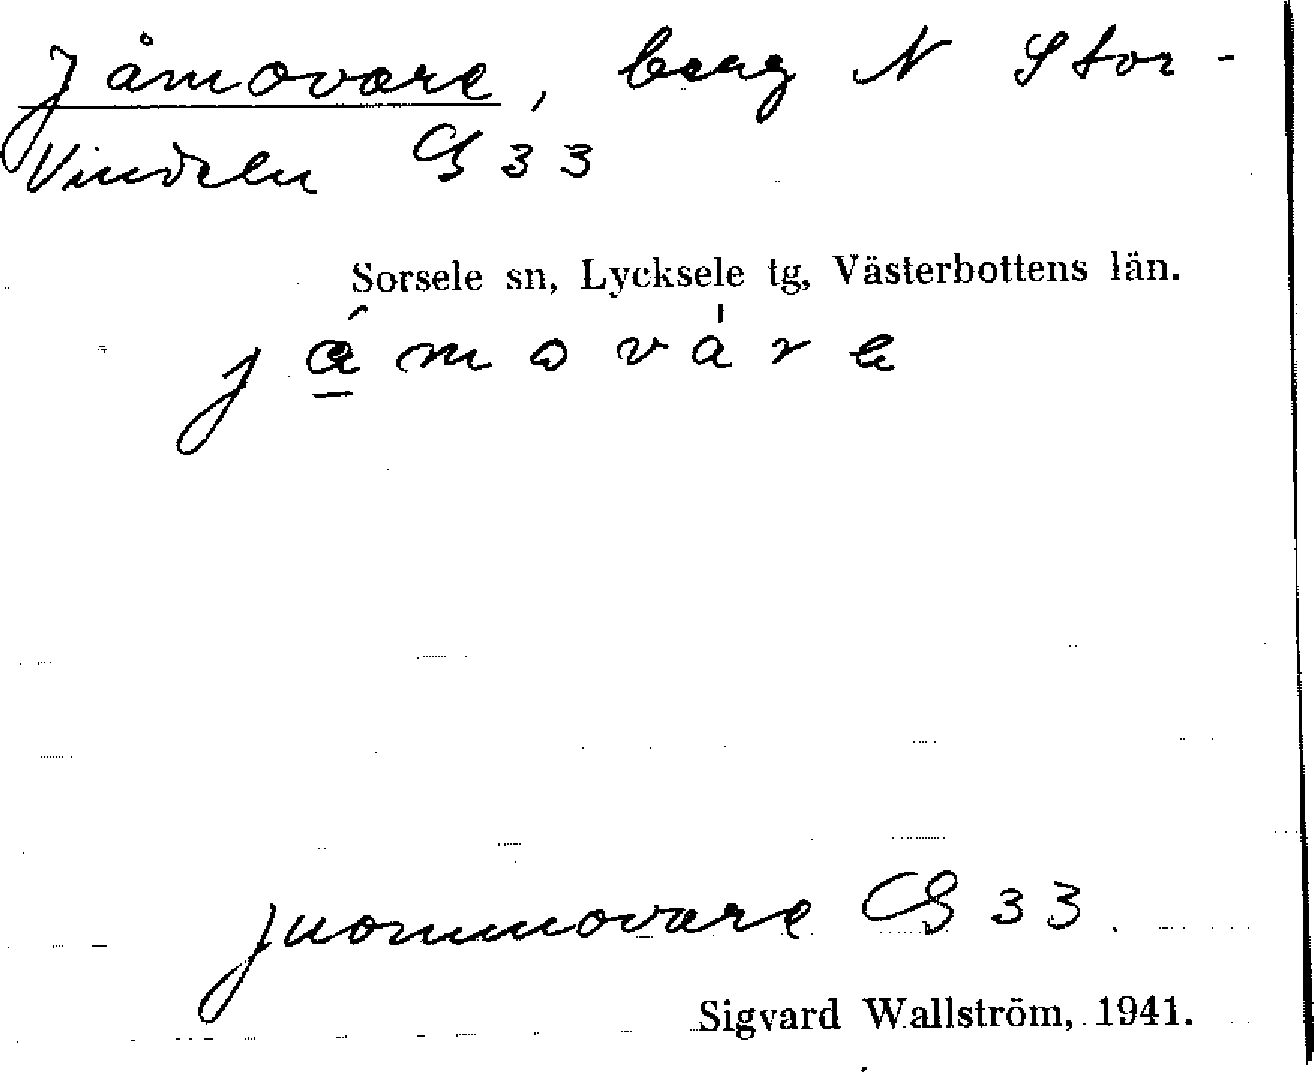 Jåmovare, berg N Stor-
Vindeln G 33
Sorsele sn, Lycksele tg, Västerbottens län.
já̱mová̍re
Juommovare G 33.
Sigvard Wallström, 1941.